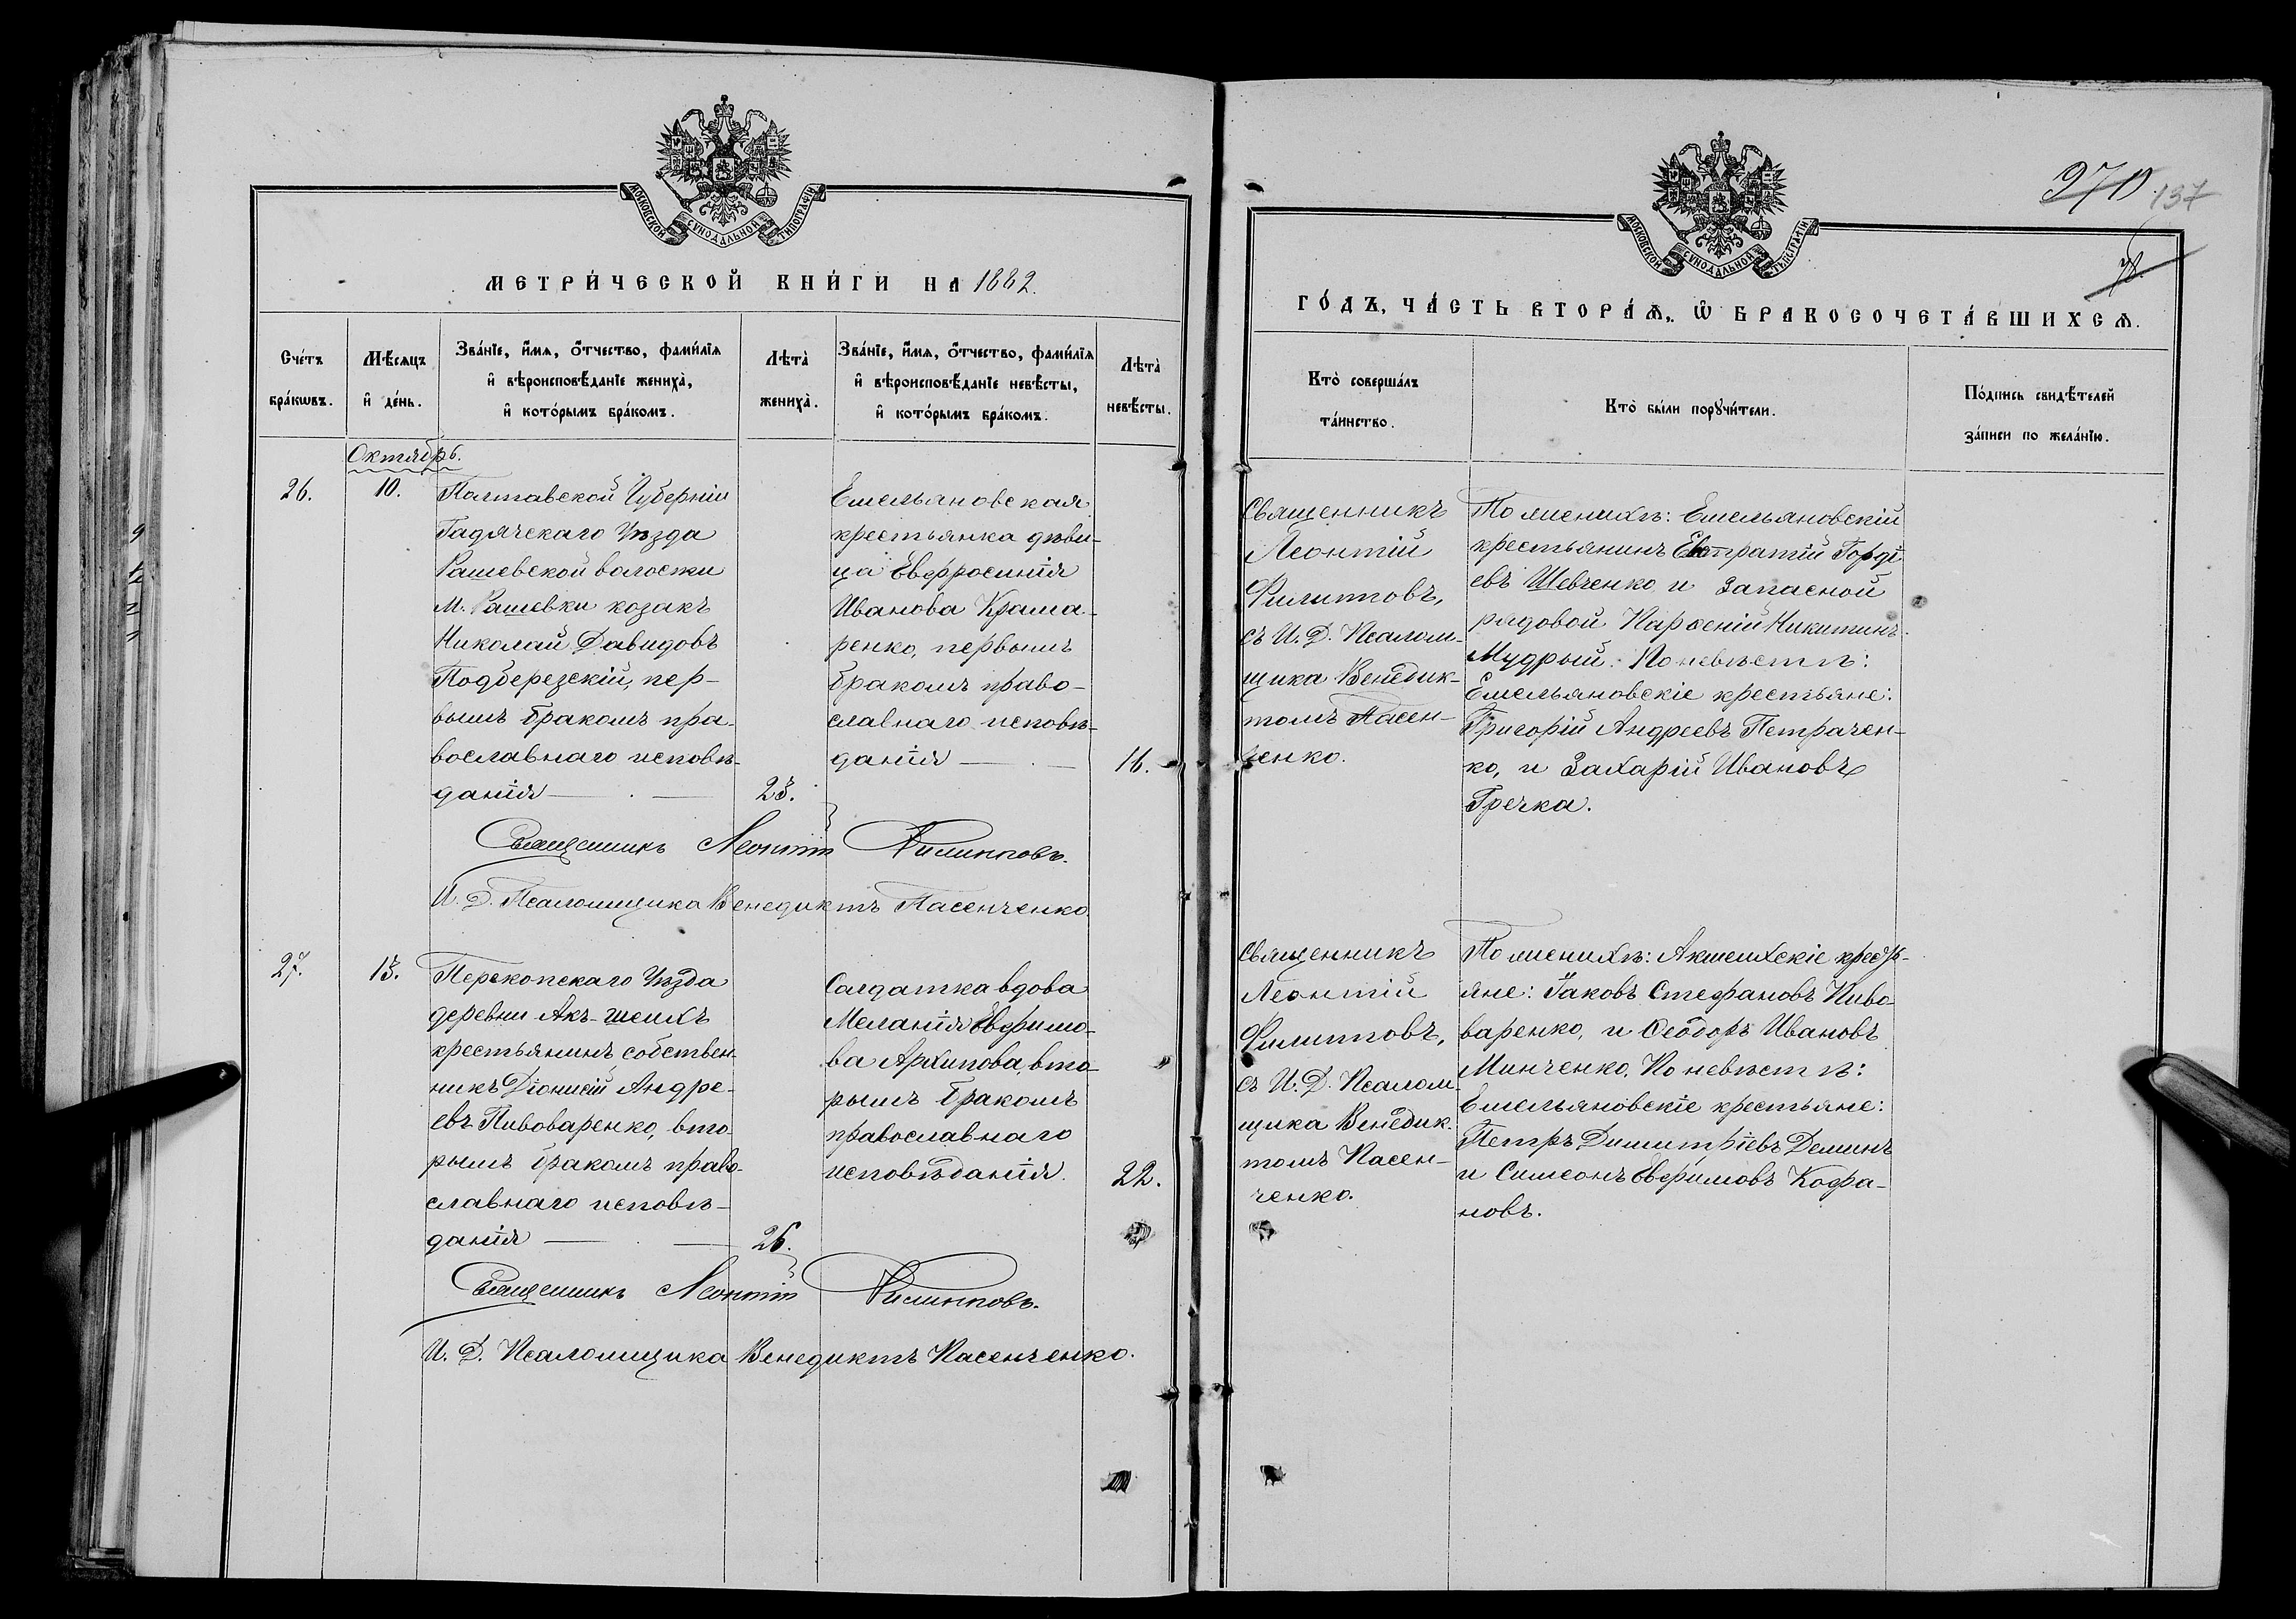 МОСКОВСКОЙ СѴНОДАЛЬНОЙ ТИПОГРАФІИ
МЕТРИ́ЧЕСКОЙ КНИ́ГИ НА 1882.
Сче́тъ бра́кѡвъ.
Мѣ́сяцъ и҆ де́нь.
Зва́нїе, и҆́мѧ, ѻ҆́тчество, фами́лїѧ
и҆ вѣроисповѣ́данїе жениха̀,
и҆ кото́рымъ бра́комъ.
Лѣта̀ жениха̀.
Зва́нїе, и҆́мѧ, ѻ҆́тчество, фами́лїѧ
и҆ вѣроисповѣ́данїе невѣ́сты,
и҆ кото́рымъ бра́комъ.
Лѣта̀ невѣ́сты.
Октябрь.
26.
10.
Полтавской Губерніи
Гадячскаго Уѣзда
Рашевской волости
М. Рашевки козакъ
Николай Давидовъ
Подберезскій, пер-
вымъ бракомъ пра-
вославнаго исповѣ-
данія
23.
Емельяновская
крестьянка дѣви-
ца Евфросинія
Иванова Крама-
ренко, первымъ
бракомъ право-
славнаго исповѣ-
данія
16.
Священникъ Леонтій Филипповъ.
И. Д. Псаломщика Венедиктъ Пасенченко.
27.
13.
Перекопскаго Уѣзда
деревни Акъ-шеихъ
крестьянинъ собствен-
никъ Діонисій Андре-
евъ Пивоваренко, вто-
рымъ бракомъ право-
славнаго исповѣ-
данія
26.
Салдатка вдова
Меланія Евфимо-
ва Архипова, вто-
рымъ бракомъ
православнаго
исповѣданія.
22.
Священникъ Леонтій Филипповъ.
И. Д. Псаломщика Венедиктъ Пасенченко.
МОСКОВСКОЙ СѴНОДАЛЬНОЙ ТИПОГРАФІИ
270
137
ГО́ДЪ, ЧА́СТЬ ВТОРА́Ѧ, Ѡ҆ БРАКОСОЧЕТА́ВШИХСѦ.
Кто̀ соверша́лъ
та́инство.
Кто̀ бы́ли порꙋчи́тели.
По́дпись свидѣ́телей
за́писи по жела́нїю.
Священникъ
Леонтій
Филипповъ,
съ И. Д. Псалом-
щика Венедик-
томъ Пасен-
ченко.
По женихѣ: Емельяновскій
крестьянинъ Евстратій Горді-
евъ Шевченко, и Запасной
рядовой Парѳеній Никитинъ
Мудрый. По невѣстѣ:
Емельяновскіе крестьяне:
Григорій Андреевъ Петрачен-
ко, и Захарій Ивановъ
Гречка.
Священникъ
Леонтій
Филипповъ,
съ И. Д. Псалом-
щика Венедик-
томъ Пасен-
ченко.
По женихѣ: Акшеихскіе кресть-
яне: Іаковъ Стефановъ Пиво-
варенко, и Ѳеодоръ Ивановъ
Минченко. По невѣстѣ:
Емельяновскіе крестьяне:
Петръ Димитріевъ Деминъ
и Симеонъ Евфимовъ Кофа-
новъ.